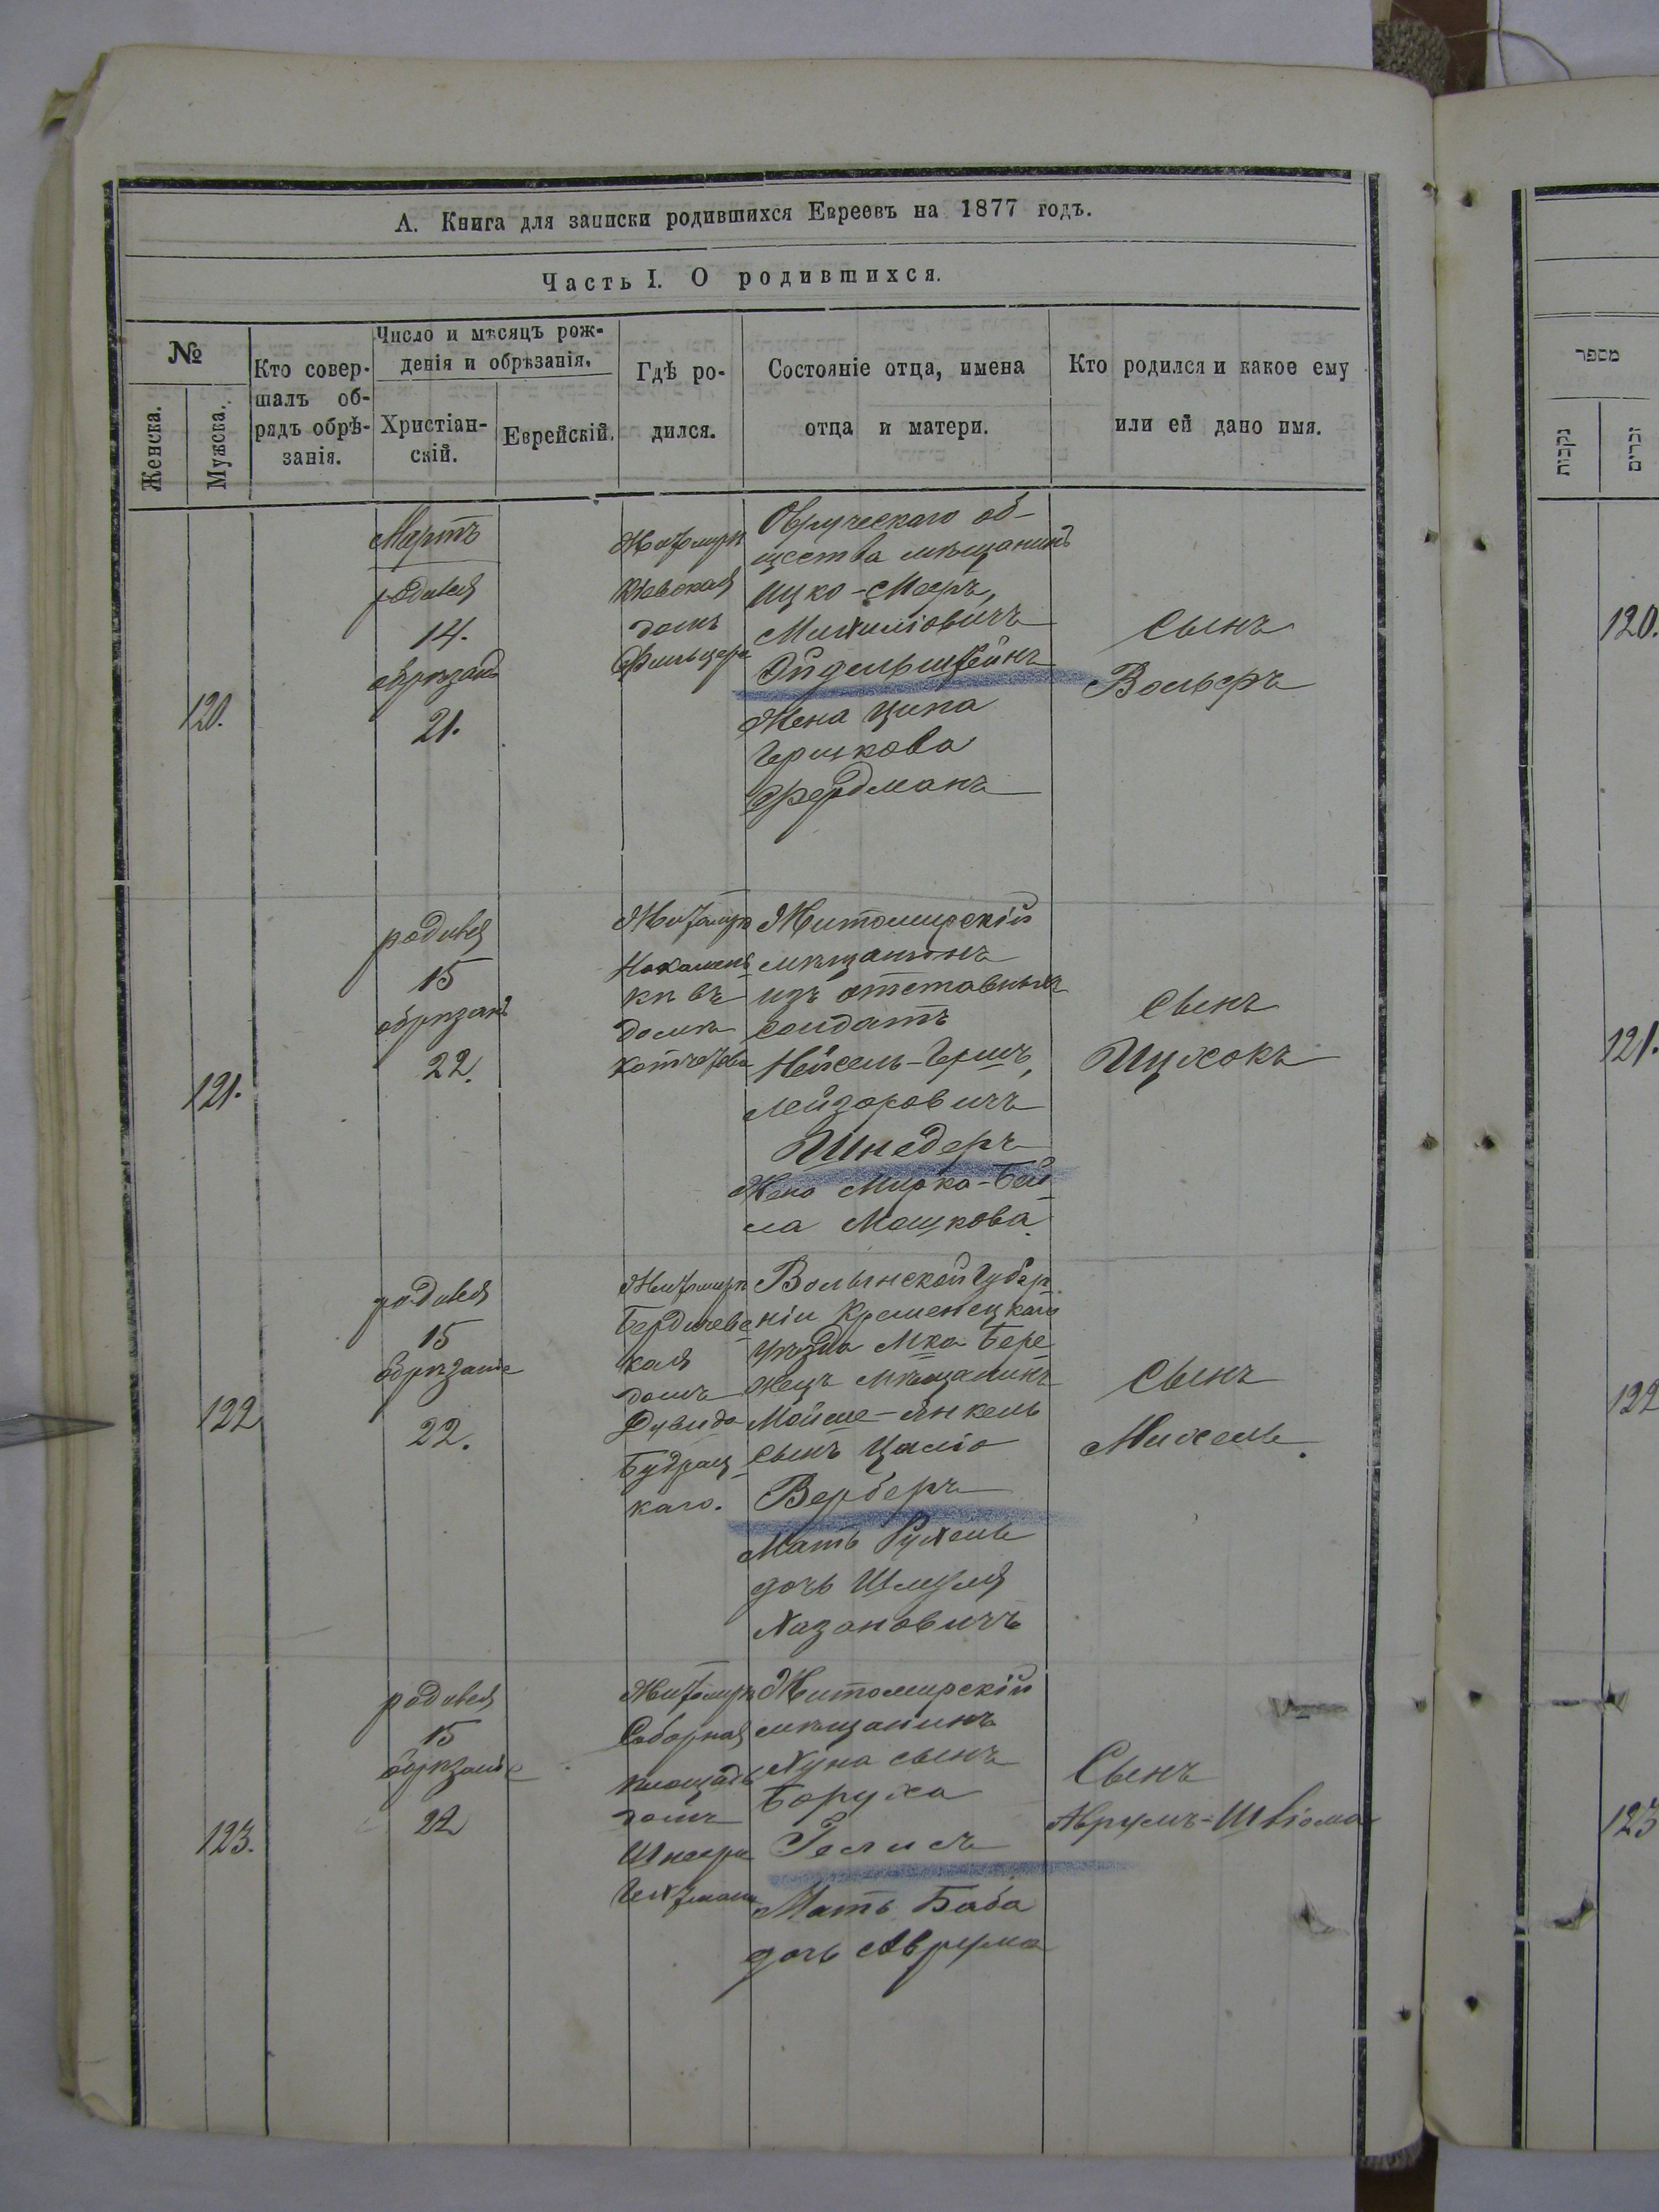 А. Книга для записки родившихся Евреевъ на 1877 годъ.
Часть I. О родившихся.
№
Женска.
Мужска.
Кто совер-
шалъ об-
рядъ обрѣ-
занія.
Число и мѣсяцъ рож-
денія и обрѣзанія.
Христіан-
скій.
Еврейскій.
Гдѣ ро-
дился.
Состояніе отца, имена
отца и матери.
Кто родился и какое ему
или ей дано имя.
120.
Мартъ
родился
14.
обрѣзанъ
21.
Житомирѣ
Кіевская
домъ
Фельцера
Овручскаго об-
щества мѣщанинъ
Ицко-Мееръ,
Михиліовичъ
Эйдельштейнъ
Жена Ципа
Гершкова
Фердманъ
Сынъ
Вольфъ
121.
родился
15
обрѣзанъ
22.
Житомирѣ
Накамен-
кѣ въ
домѣ
Житомирскій
мѣщанинъ
изъ отставныхъ
солдатъ
Нейсель-Гершъ,
Лейзоровичъ
Шнедеръ
Жена Мирка-Бей
ла Мошкова
Сынъ
Ицхокъ
122
родился
15
обрѣзаніе
22.
Житомирѣ
Бердичевс
кая
домъ
Дувида
Будрац-
каго.
Волынской Губер
ніи Кременецкаго
Уѣзда Мка Бере
жецъ Мѣщанинъ
Мойше-Янкель
сынъ Цаліо
Верберъ
Мать Рухель
дочь Шмуля
Хазановичъ
Сынъ
Михель.
123.
родился
15
обрѣзаніе
22
Житомирѣ
Соборная
площадь
домъ
Житомирскій
мѣщанинъ
Хуна сынъ
Боруха
Гелисъ
Мать Баба
дочь Аврума
Сынъ
Аврумъ-Шліома
מספר
נקבות
זכרים
120.
121.
122
123